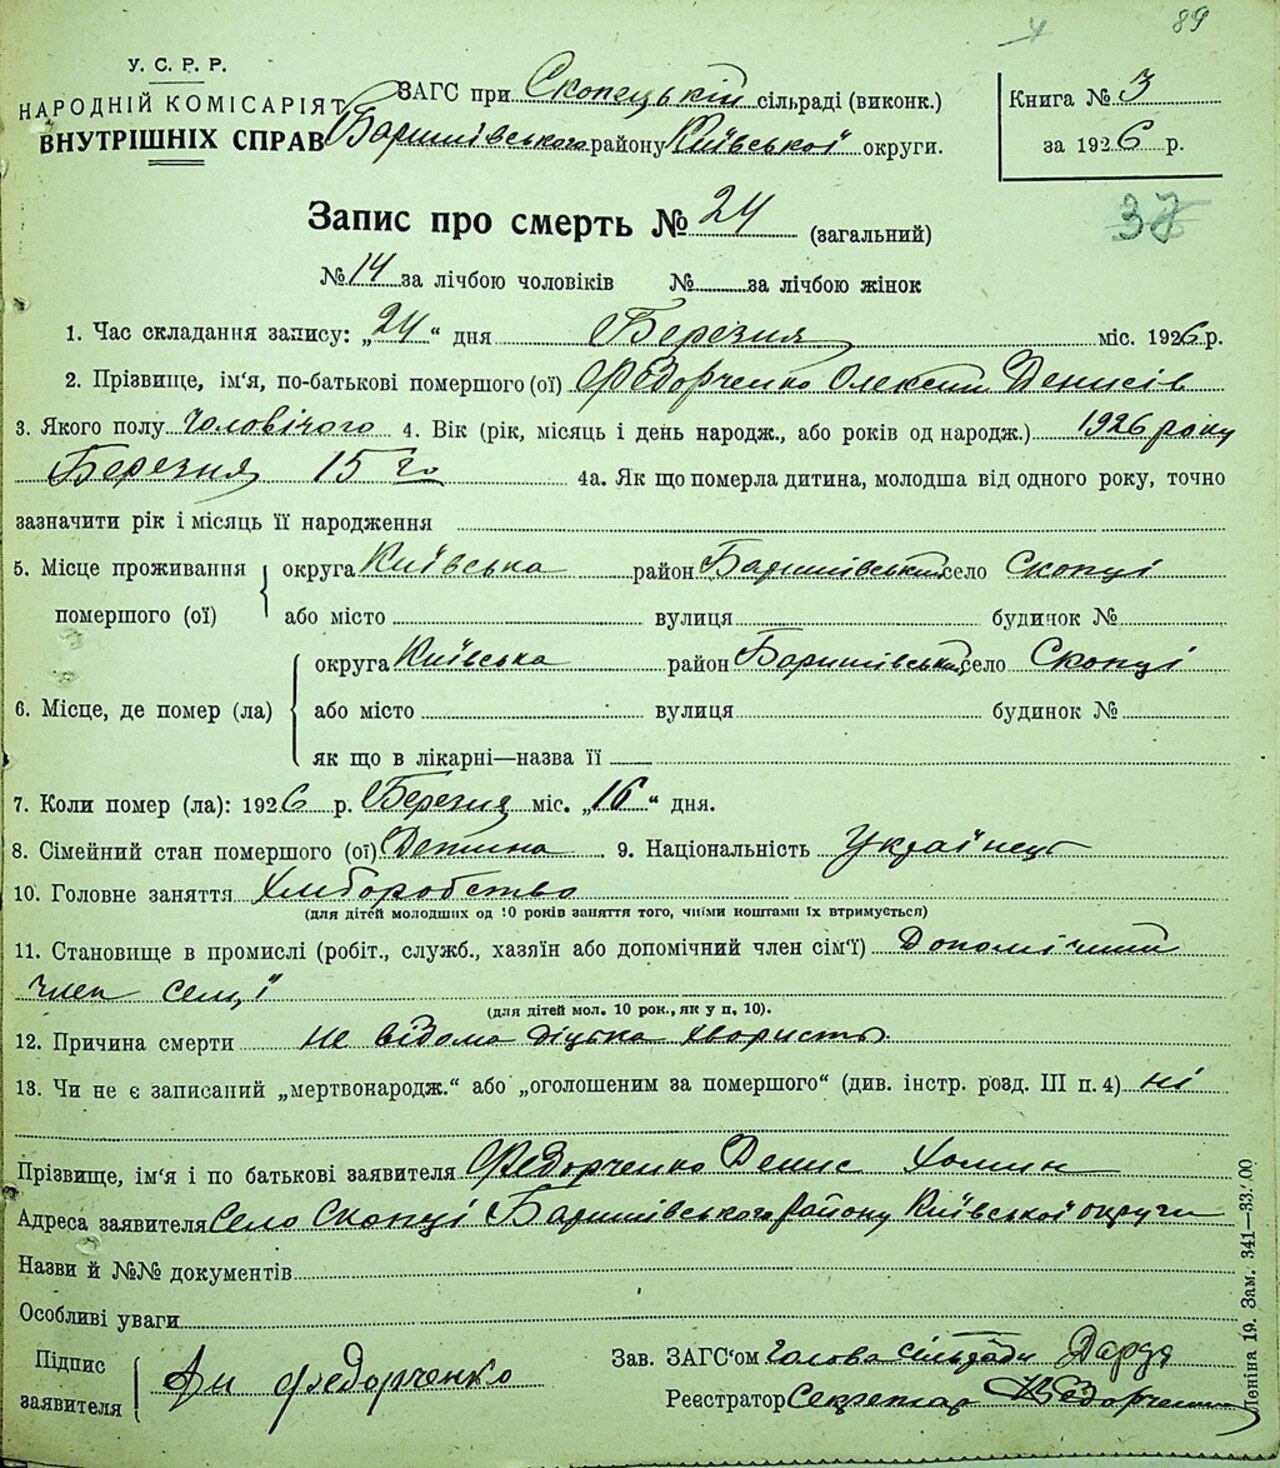 89
У. С. Р. Р.
НАРОДНІЙ КОМІСАРІЯТ
ВНУТРІШНІХ СПРАВ
ЗАГС при Скопецькій сільраді (виконк.)
Баришівського району Київської округи.
Книга № 3
за 1926 р.
Запис про смерть № 24 (загальний)
37
№ 14 за лічбою чоловіків № за лічбою жінок
1. Час складання запису: „24“ дня Березня міс. 1926 р.
2. Прізвище, ім'я, по-батькові помершого (ої) Федорченко Олексій Денисів
3. Якого полу чоловічого 4. Вік (рік, місяць і день народж., або років од народж.) 1926 року
Березня 15 го 4а. Як що померла дитина, молодша від одного року, точно
зазначити рік і місяць її народження
5. Місце проживання помершого (ої) округа Київська район Баришівський село Скопці
або місто вулиця будинок №
6. Місце, де помер (ла) округа Київська район Баришівський село Скопці
або місто вулиця будинок №
як що в лікарні—назва її
7. Коли помер (ла): 1926 р. Березня міс. „16“ дня.
8. Сімейний стан помершого (ої) Детина 9. Національність Українець
10. Головне заняття Хліборобство
(для дітей молодших од 10 років заняття того, чиїми коштами їх втримується)
11. Становище в промислі (робіт., служб., хазяїн або допомічний член сім'ї) Допомічний
член сем 'ї
(для дітей мол. 10 рок., як у п. 10).
12. Причина смерти не відома діцька хвористь
13. Чи не є записаний „мертвонародж.“ або „оголошеним за помершого“ (див. інстр. розд. III п. 4) ні
Прізвище, ім'я і по батькові заявителя Федорченко Денис Хомин
Адреса заявителя Село Скопці Баришівського Району Київської округи
Назви й №№ документів
Особливі уваги
Підпис
заявителя
Федорченко
Зав. ЗАГС'ом Голова сільради
Реєстратор Секретар Федорченко
Леніна 19. Зам. 341—33.